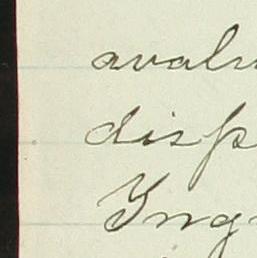 avalu
disp
Yng